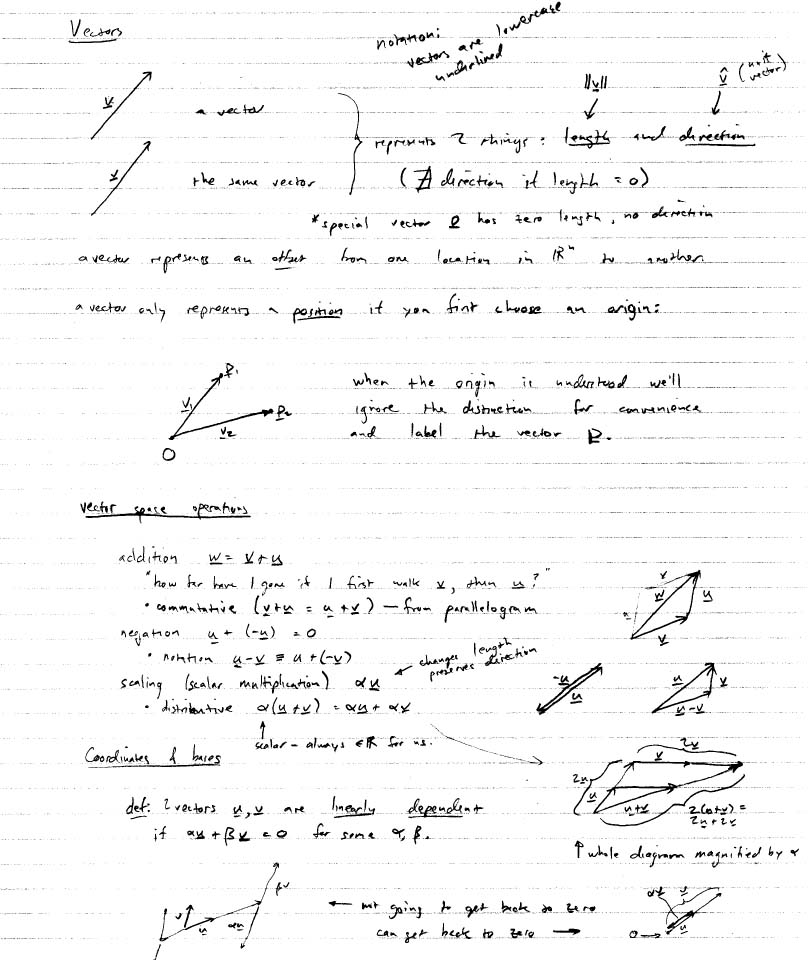 Vectors
notation:
vectors are lowercase
underlined
||v||
v̂ (unit vector)
v
a vector
represents 2 things: length and direction
v
the same vector
(∄ direction if length = 0)
*special vector 0 has zero length, no direction
a vector represents an offset from one location in ℝⁿ to another.
a vector only represents a position if you first choose an origin:
P₁
v₁
P₂
v₂
O
when the origin is understood we'll
ignore the distinction for convenience
and label the vector P.
Vector space operations
addition w = v + u
"how far have I gone if I first walk v, then u?"
• commutative (v+u = u+v) — from parallelogram
v
w
u
u
v
negation u + (-u) = 0
• notation u-v ≡ u+(-v)
changes length
preserves direction
scaling (scalar multiplication) αu
• distributive α(u+v) = αu + αv
-u
u
u
v
u-v
scalar - always ∈ ℝ for us.
Coordinates & bases
2v
v
2u
u
u+v
2(u+v) =
2u+2v
↑ whole diagram magnified by α
def: 2 vectors u, v are linearly dependent
if αu + βv = 0 for some α, β.
βv
v
u
αu
← not going to get back to zero
can get back to zero →
αu
v
u
0